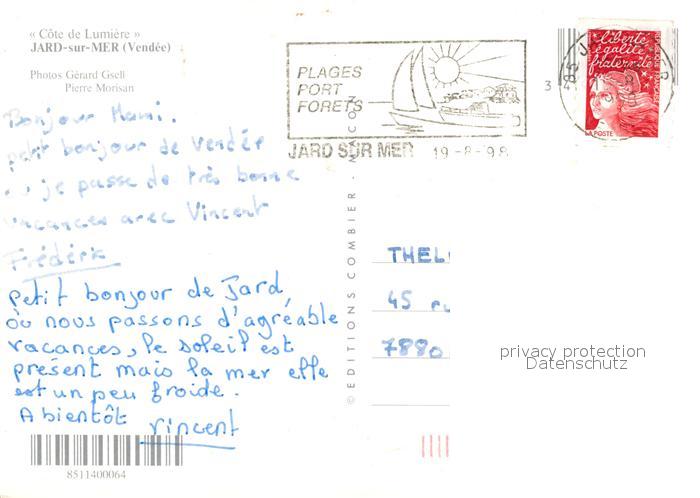 « Côte de Lumière »
JARD-sur-MER (Vendée)
Photos Gérard Gsell
Pierre Morisan
Bonjour Mami.
petit bonjour de Vendée
où je passe de très bonne
vacances avec Vincent
Frédéric
petit bonjour de Jard,
où nous passons d'agréable
vacances, le soleil est
présent mais la mer elle
est un peu froide.
A bientôt Vincent
8511400064
PLAGES
PORT
FORETS
JARD SUR MER 19-8-98
3
liberté
égalité
fraternité
LA POSTE
© EDITIONS COMBIER
THEL
45
7880
privacy protection
Datenschutz